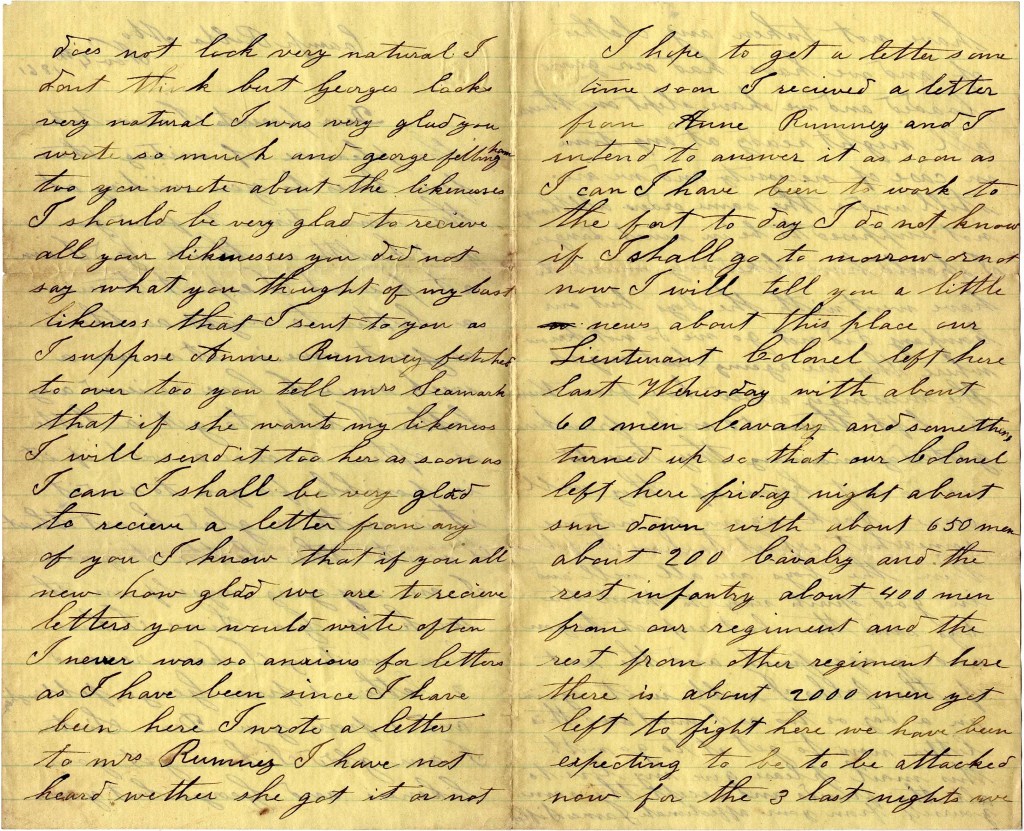 does not look very natural I
dont think but Georges looks
very natural I was very glad you
wrote so much and george felling
too you wrote about the likenesses
I should be very glad to recieve
all your likenesses you did not
say what you thought of my last
likeness that I sent to you as
I suppose Anne Rumney fetched
to over too you tell mrs Seamark
that if she wants my likeness
I will send it too her as soon as
I can I shall be very glad
to recieve a letter from any
of you I know that if you all
new how glad we are to recieve
letters you would write often
I never was so anxious for letters
as I have been since I have
been here I wrote a letter
to mrs Rumney I have not
heard wether she got it or not
I hope to get a letter some
time soon I recieved a letter
from Anne Rumney and I
intend to answer it as soon as
I can I have been to work to
the fort to day I do not know
if I shall go to morrow or not
now I will tell you a little
news about this place our
Lieutenant Colonel left here
last Wenesday with about
60 men Cavalry and something
turned up so that our Colonel
left here friday night about
sun down with about 650 men
about 200 Cavalry and the
rest infantry about 400 men
from our regiment and the
rest from other regiment here
there is about 2000 men yet
left to fight here we have been
expecting to be to be attacked
now for the 3 last nights we